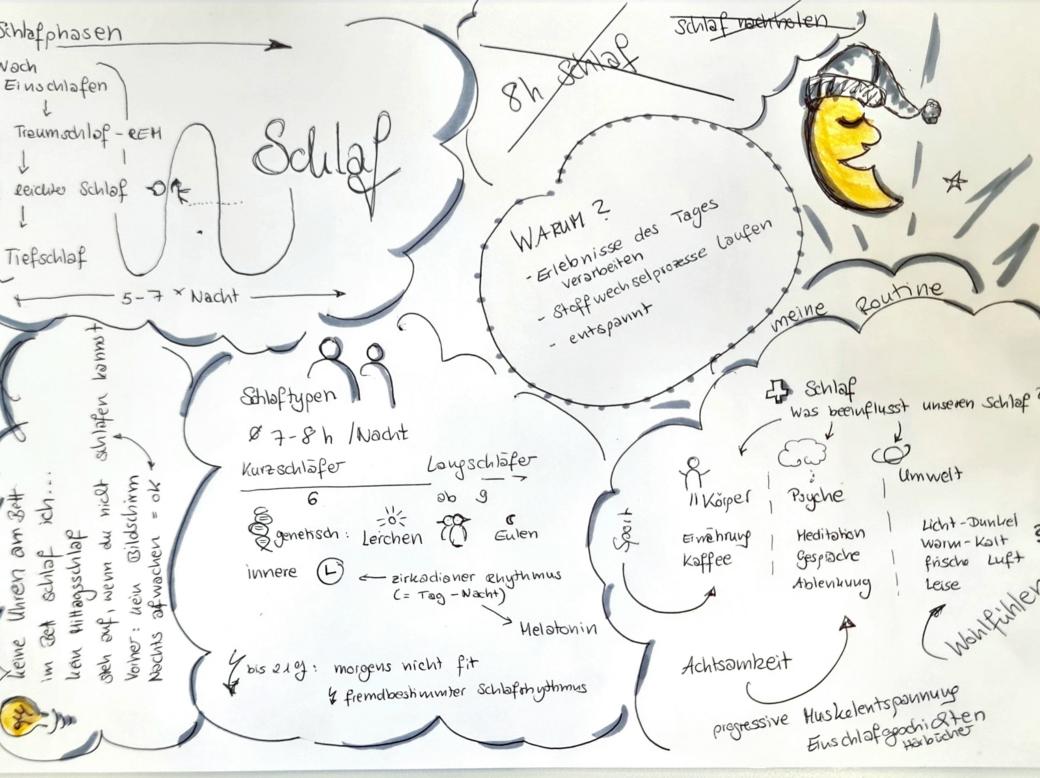 Schlafphasen
Nach
Einschlafen
Traumschlaf - REM
leichter Schlaf
Tiefschlaf
5-7 x Nacht
Schlaf
8h Schlaf
Schlaf nachholen
WARUM?
- Erlebnisse des Tages
verarbeiten
- Stoffwechselprozesse laufen
- entspannt
meine Routine
keine Uhren am Bett
im Bett schlaf ich...
kein Mittagsschlaf
steh auf, wenn du nicht schlafen kannst
Vorher: kein Bildschirm
Nachts aufwachen = OK
Schlaftypen
Ø 7-8 h /Nacht
Kurzschläfer
6
Langschläfer
ab 9
genetisch: Leirchen
Eulen
innere
zirkadianer Rhythmus
(= Tag-Nacht)
Melatonin
bis 21J: morgens nicht fit
fremdbestimmter Schlafrhythmus
+ Schlaf
Was beeinflusst unseren Schlaf?
Körper
Ernährung
Kaffee
Psyche
Meditation
Gespräche
Ablenkung
Umwelt
Licht-Dunkel
warm-kalt
frische Luft
Leise
Wohlfühlen
Achtsamkeit
progressive Muskelentspannung
Einschlafgeschichten
Hörbücher